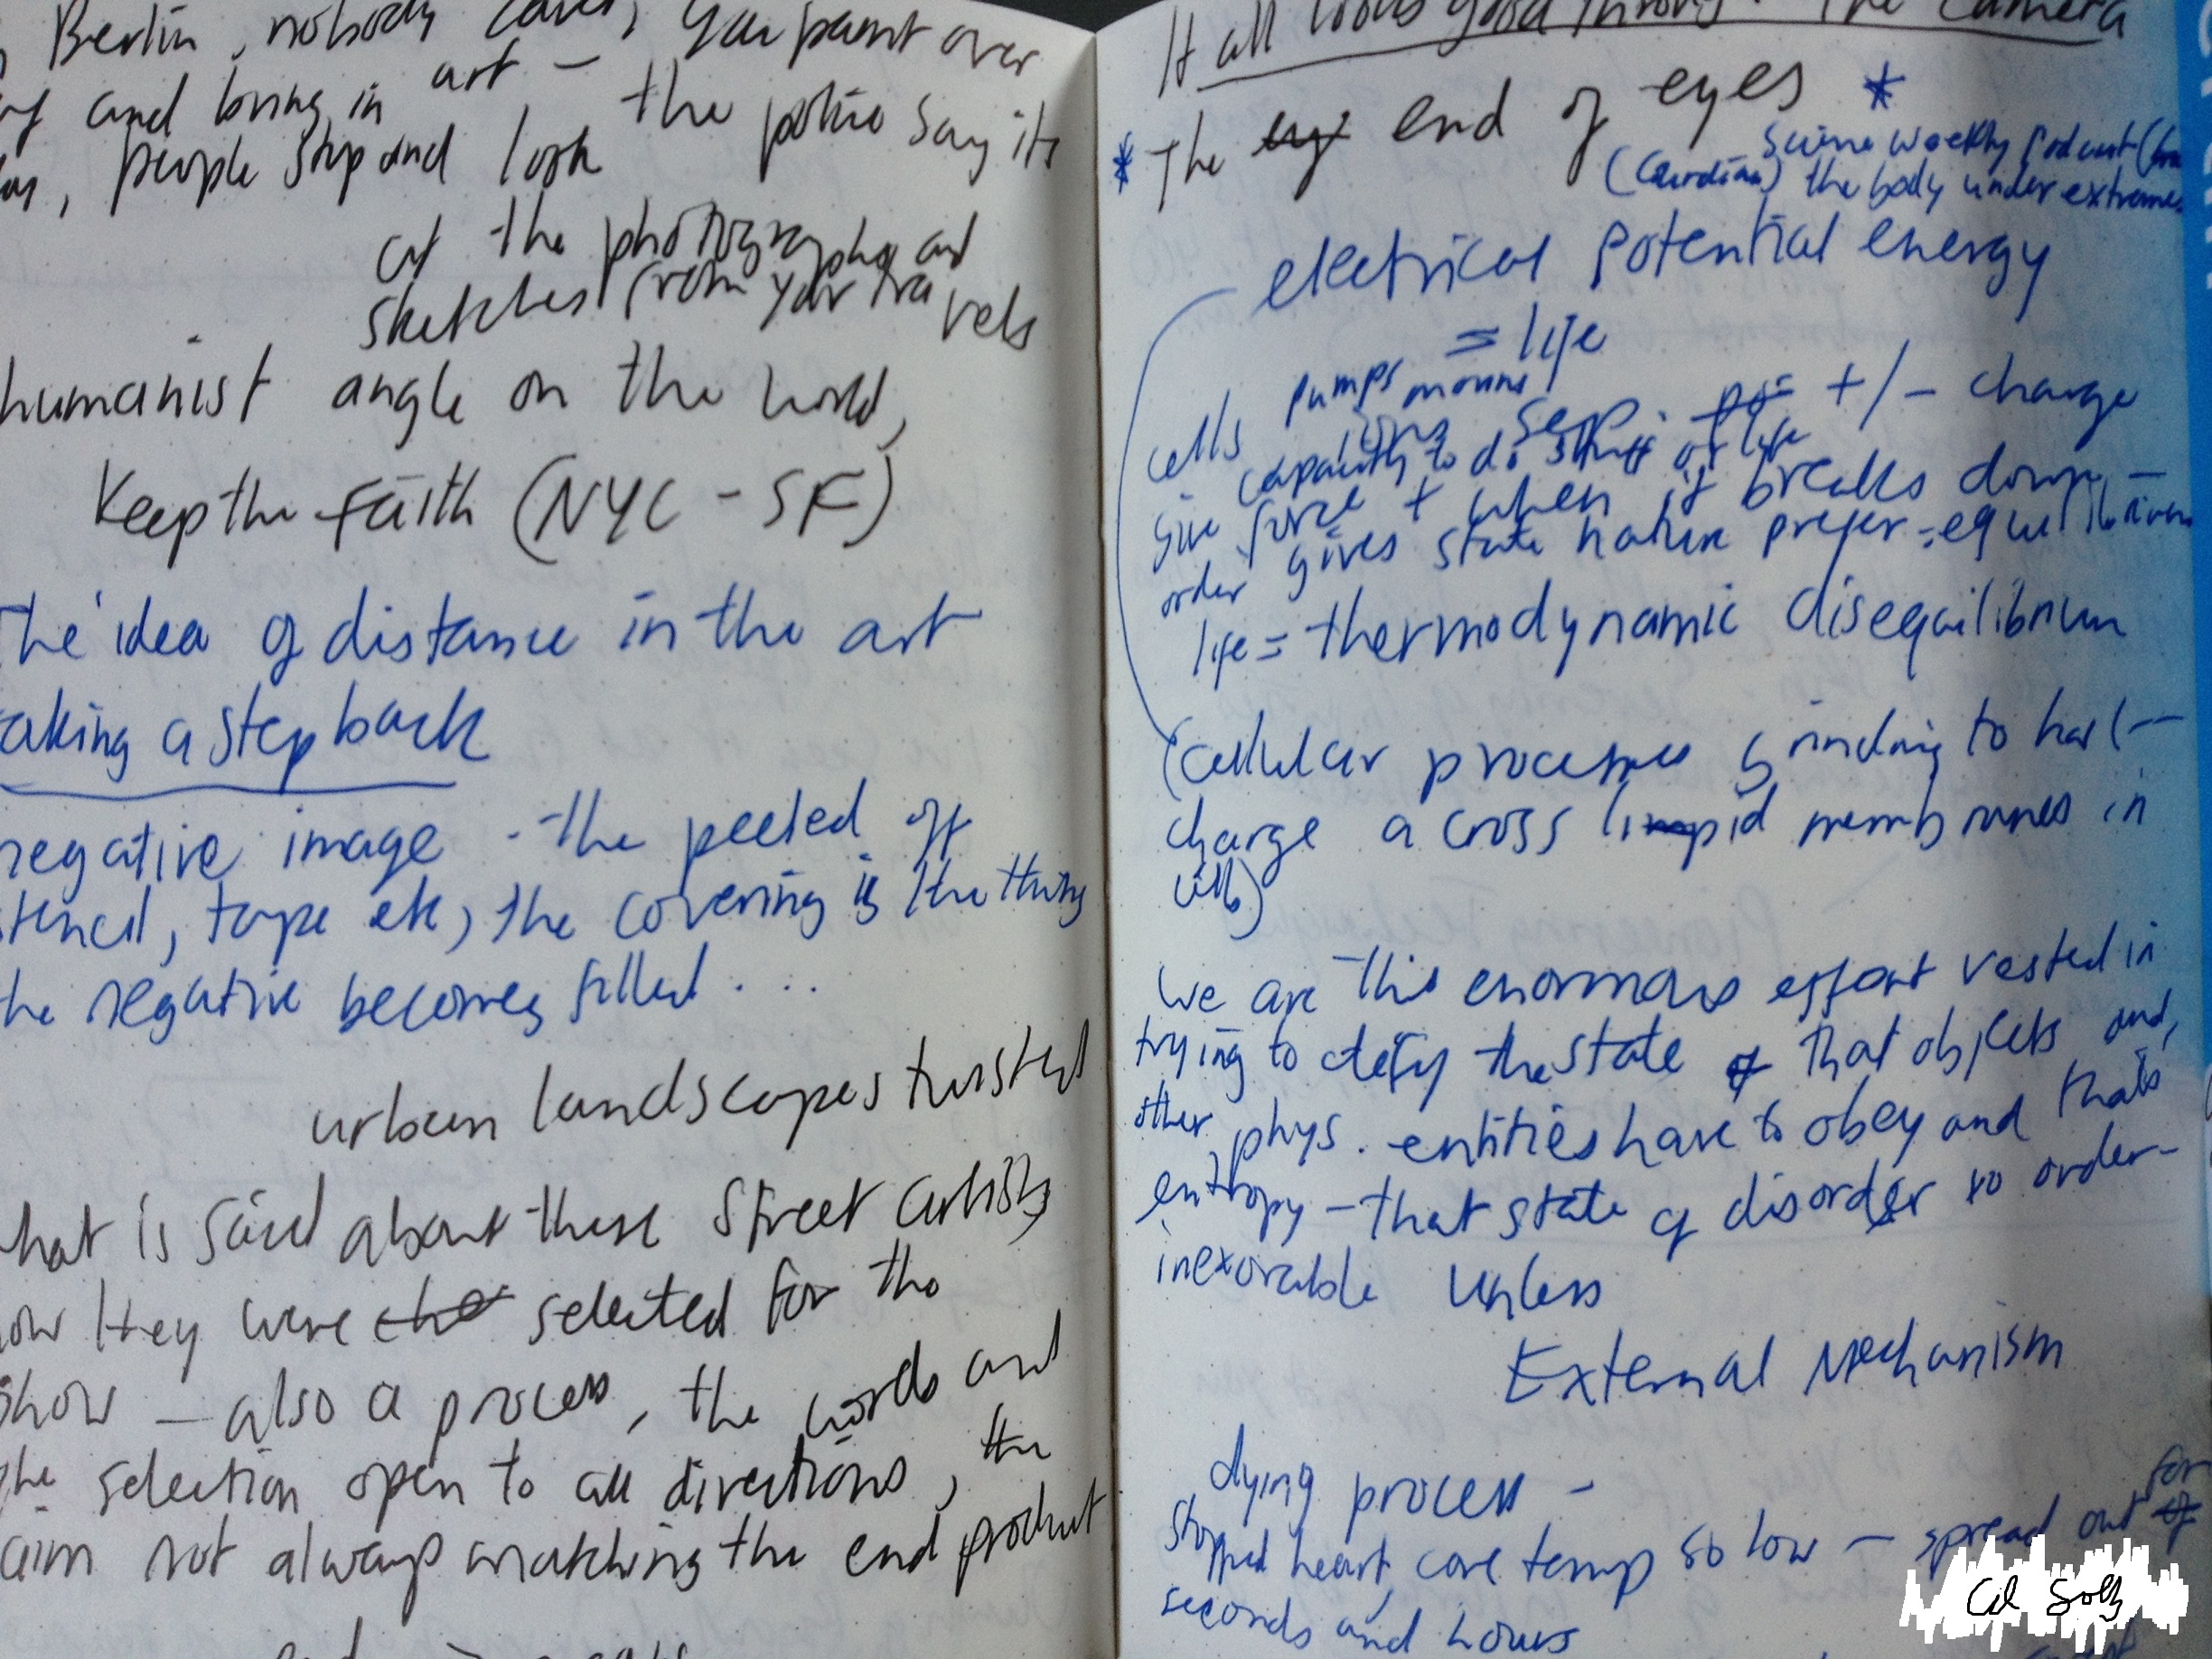 Berlin, nobody cares, you paint over
and loving in art -
people stop and look the police say its
at the photographs and
sketches from your travels
humanist angle on the world,
Keep the faith (NYC - SF)
the idea of distance in the art
taking a step back
negative image - the peeled off
stencil, tape etc, the covering is the thing
the negative becomes filled ....
urban landscapes twisted
what is said about these street artists
how they were selected for the
show - also a process, the words and
the selection open to all directions, the
aim not always matching the end product
It all looks good through the camera
* The end of eyes *
Science Weekly Podcast
(Guardian) the body under extremes
electrical potential energy
= life
cells pumps moving ions sep. +/- charge
capacity to do stuff of life
give force + when it breaks down -
order gives state nature prefer - equilibrium
life = thermodynamic disequilibrium
(cellular processes grinding to halt -
charge across lipid membranes in
cells)
We are this enormous effort vested in
trying to defy the state that objects and,
other phys. entities have to obey and thats
entropy - that state of disorder so order -
inexorable unless
External Mechanism
dying process -
stopped heart, core temp so low - spread out for
seconds and hours